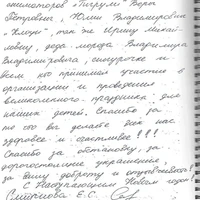 аниматоров "Пигрули" Вера
Петровны, Юлии Владимировне
так же Ирину Михай-
ловну, деда мороза Владимира
Владимировича, снегурочке и
всем кто принимал участие в
организации и проведения
великолепного праздника для
наших детей. Спасибо за
то что вы делаете нас
здоровее и счастливее!!!
Спасибо за обстановку, за
дорогостоящие украшения,
за вашу доброту и отзывчивость!
С Наступающим Новым годом!
Смирнова Е.С.